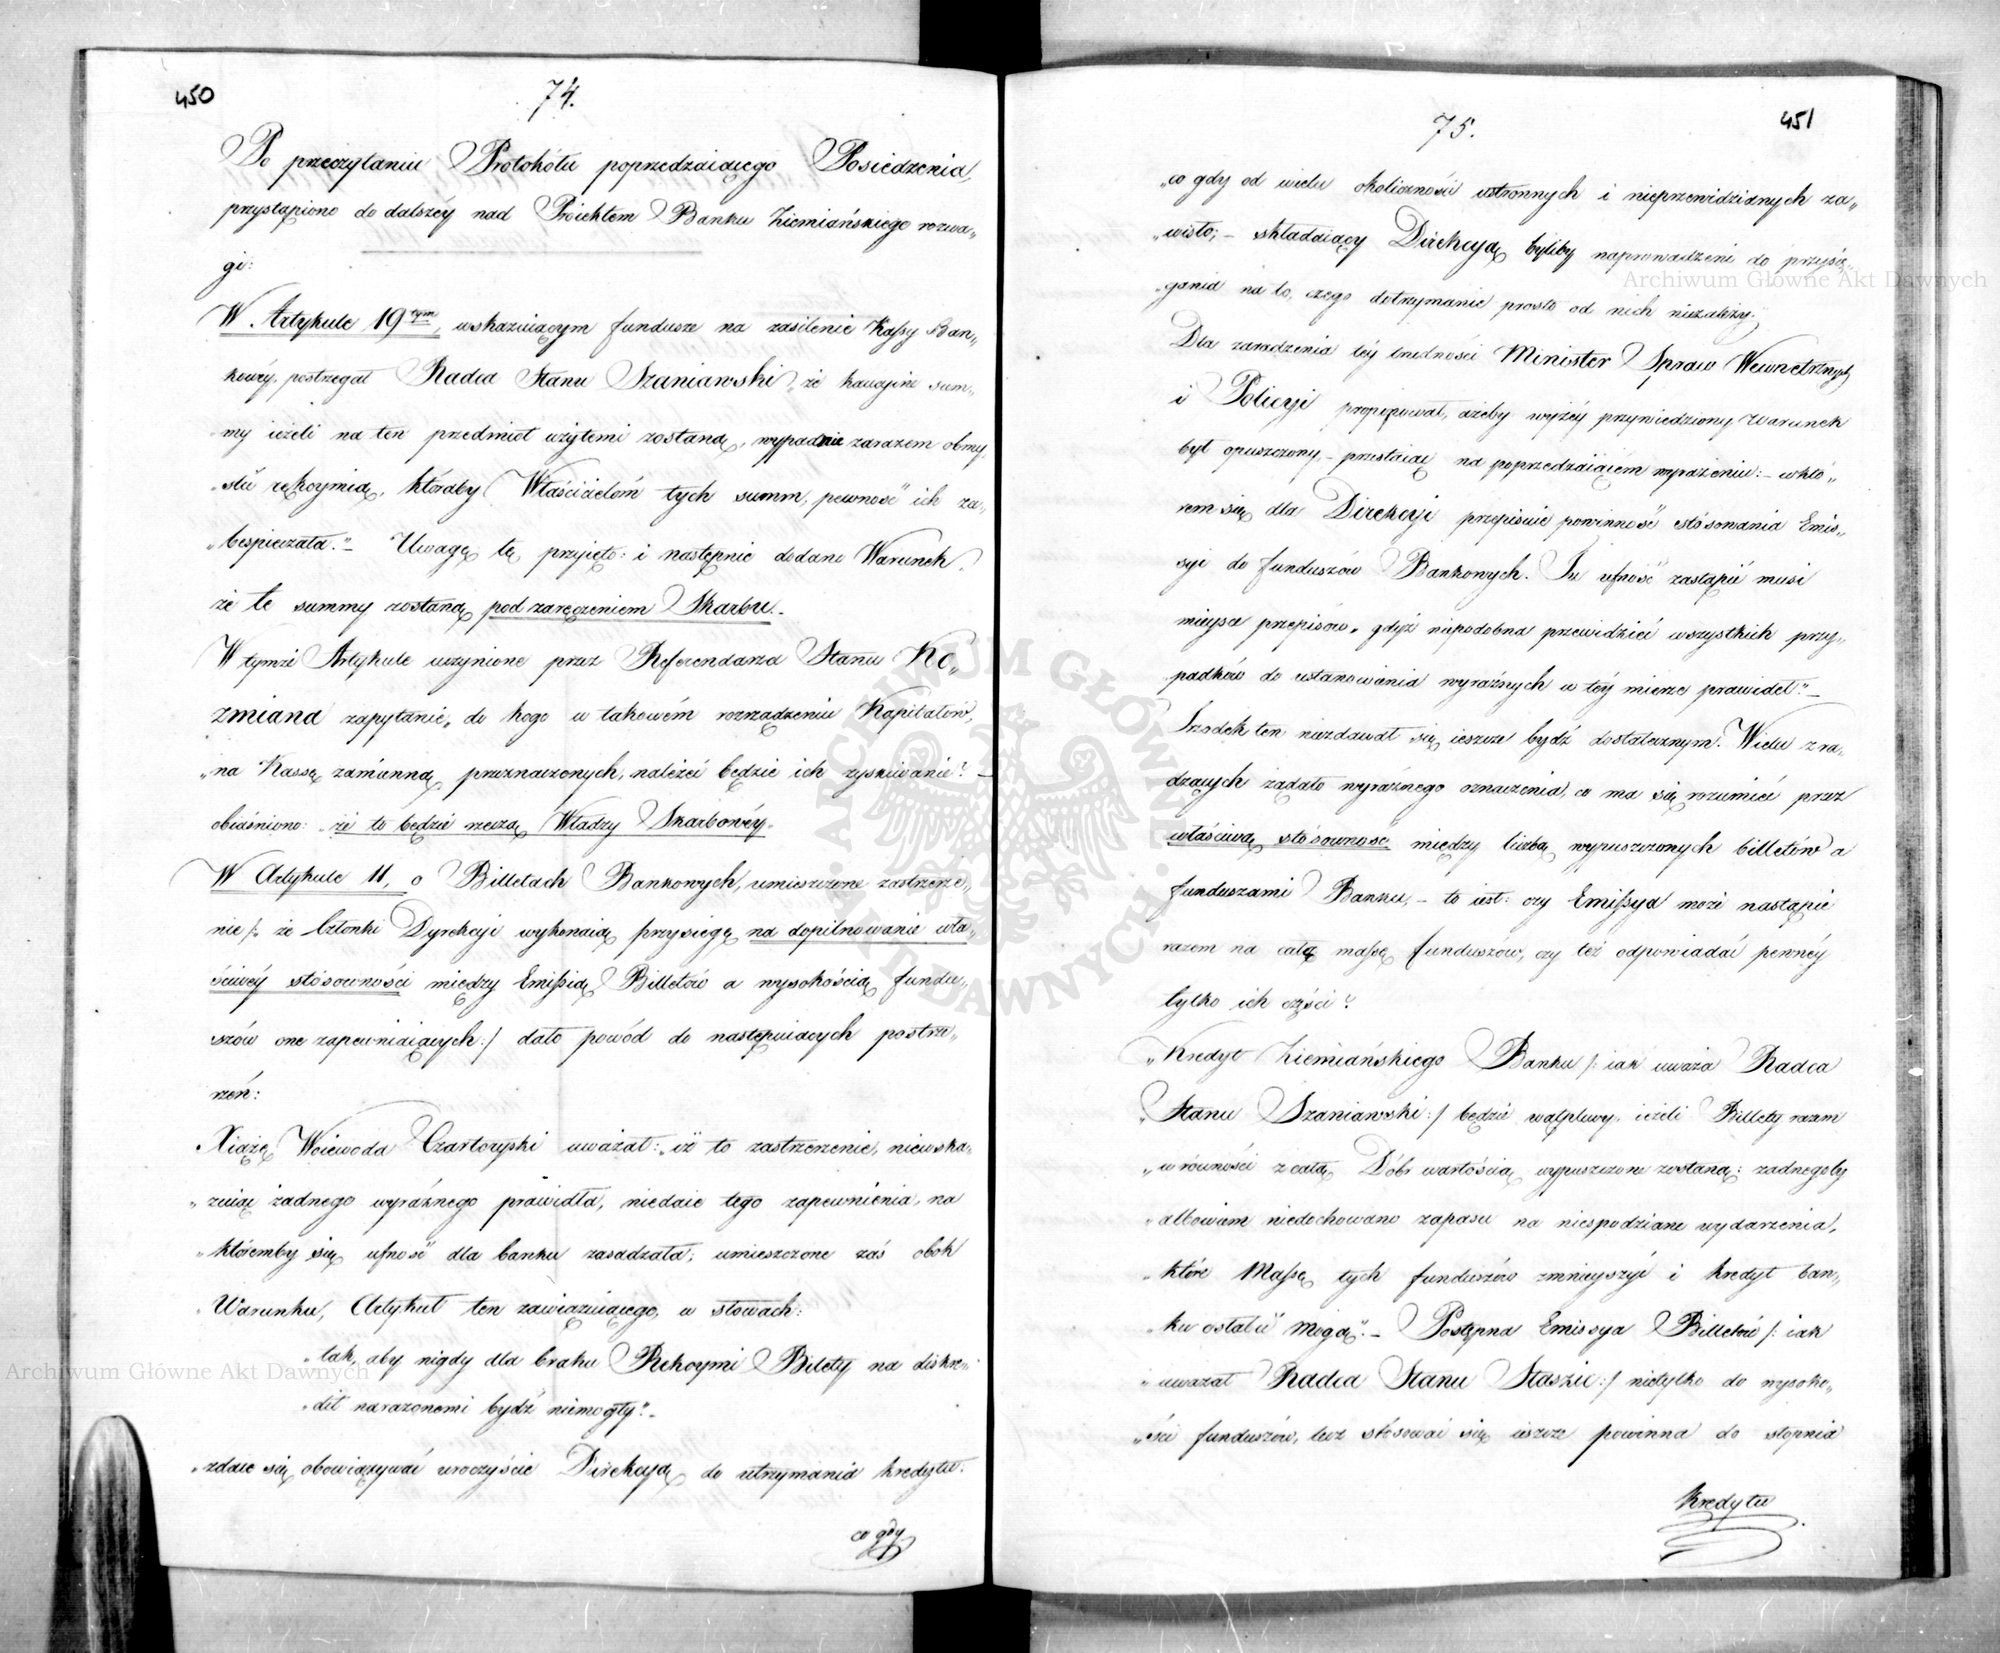 450
74.
Po przeczytaniu Protokółu poprzedzaiącego Posiedzenia,
przystąpiono do dalszéy nad Proiektem Banku Ziemiańskiego rozwa„
gi:
W. Artykule 19tym, wskazuiącym fundusze na zasilenie Kassy Ban„
kowéy, postrzegał Radca Stanu Szaniawski, „że kaucyine sum„
my ieżeli na ten przedmiot użytemi zostaną, wypadnie zarazem obmy„
„ślić rękoymią, któraby Właścicielom tych summ, pewność ich za„
„bespieczała.”– Uwagę tę, przyięto: i następnie dodano Warunek,
że te summy zostaną pod zaręczeniem Skarbu.–
W tymże Artykule uczynione przez Referendarza Stanu Ko„
zmiana zapytanie, „do kogo w takowém rozrządzeniu Kapitałów,
„na Kassę zamianną przeznaczonych, należeć będzie ich zyskiwanie? –
obiaśniono: „że to będzie rzeczą Władzy Skarbowéy„
W Artykule 11, o Billetach Bankowych, umieszczone zastrzeże„
nie /: że Członki Dyrekcyi wykonaią przysięgę na dopilnowanie wła„
ściwéy stósowności między Emissią Billetów a wysokością fundu„
szów one zapewniaiących :/ dało powód do następuiących postrze„
żeń:
Xiążę Woiewoda Czartoryski uważał: „iż to zastrzeżenie, niewska„
„zuiąc żadnego wyraźnego prawidła, niedaie tego zapewnienia, na
„którémby się ufność dla banku zasadzała; umieszczone zaś obok
„Warunku, Artykuł ten zawiązuiącego, w słowach:
„tak, aby nigdy dla braku Rękoymi Bilety na diskre„
„dit narażonemi bydź niemogły.”–
„zdaie się obowiązywać uroczyście Direkcyą do utrzymania kredytu:
co gdy
451
75.
„co gdy od wielu okoliczności ustronnych i nieprzewidzianych za„
„wisło; – składaiący Direkcyą byliby naprowadzeni do przysię„
„gania na to, czego dotrzymanie prosto od nich niezależy.”
Dla zaradzenia téy trudności Minister Spraw Wewnętrznych
i Policyi proponował, ażeby wyżéy przywiedziony Warunek
był opuszczony – przestaiąc na poprzedzaiącém wyrażeniu: – w któ„
rém się dla Direkcyi przepisuie powinność stósowania Emis„
syi do funduszów Bankowych. Tu ufność zastąpić musi
mieysce przepisów, gdyż niepodobna przewidzieć wszystkich przy„
padków do ustanowienia wyraźnych w téy mierze prawideł.”–
Srodek ten niezdawał się ieszcze bydź dostatecznym. Wielu z ra„
dzących żądało wyraźnego oznaczenia, co ma się rozumieć przez
właściwą stósowność między liczbą wypuszczonych billetów a
funduszami Banku, – to iest: czy Emissya może nastąpić
razem na całą massę funduszów, czy też odpowiadać pewnéy
tylko ich części?
„Kredyt Ziemiańskiego Banku /: iak uważa Radca
„Stanu Szaniawski :/ będzie wątpliwy, ieżeli Billety razem
„w równości z całą Dóbr wartością wypuszczone zostaną: żadnegoby
„albowiem niedochowano zapasu na niespodziane wydarzenia,
„które Massę tych funduszów zmnieyszyć i kredyt ban„
„ku osłabić mogą.”– Postępna Emissya Billetów /: iak
„uważał Radca Stanu Staszic :/ nietylko do wysoko„
„ści funduszów, lecz stósować się ieszcze powinna do stopnia
kredytu
Archiwum Główne Akt Dawnych
Archiwum Główne Akt Dawnych
ARCHIWUM GŁÓWNE AKT DAWNYCH